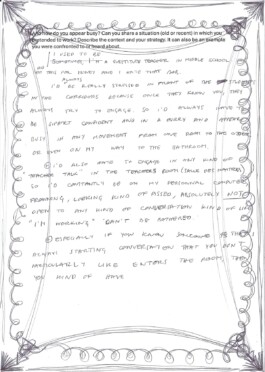 How do you appear busy? Can you share a situation (old or recent) in which you
pretended to work? Describe the context and your strategy. It can also be an example
you were confronted to or heard about
I USED TO BE
SUBSTITUTE TEACHER IN MIDDLE SCHOOL
AND I
ALWAYS
I'D BE REALLY STRESSED IN FRONT OF THE
IN THE CORRIDORS BECAUSE ONCE THEY KNOW YOU, THEY
ALWAYS TRY TO ENGAGE. SO I'D ALWAYS HAVE TO
BE SUPER CONFIDENT AND IN A RUSH AND APPEAR
BUSY IN ANY MOVEMENT FROM ONE ROOM TO THE OTHER
OR EVEN ON MY WAY TO THE BATHROOM.
I'D ALSO AVOID TO ENGAGE IN ANY KIND OF
"TEACHER TALK" IN THE TEACHERS ROOM
SO I'D CONSTANTLY BE ON MY PERSONAL COMPUTER
LOOKING KIND OF ABSOLUTELY NOT
OPEN TO ANY KIND OF CONVERSATION KIND OF LIKE
"I'M WORKING" CAN'T BE BOTHERED
ESPECIALLY IF YOU KNOW SOMEONE
ALWAYS STARTING CONVERSATION THAT YOU DON'T
LIKE ENTERS THE ROOM, THEN
YOU KIND OF HAVE